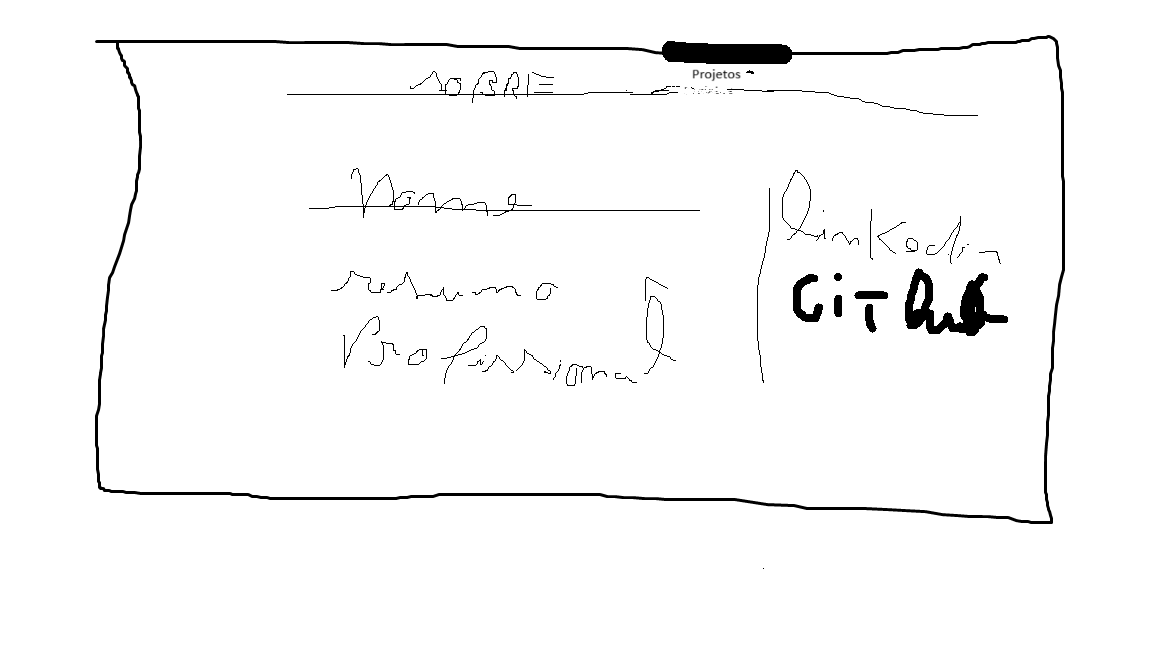 SOBRE Projetos
Nome
resumo
Profissional
linkedin
GiT hub